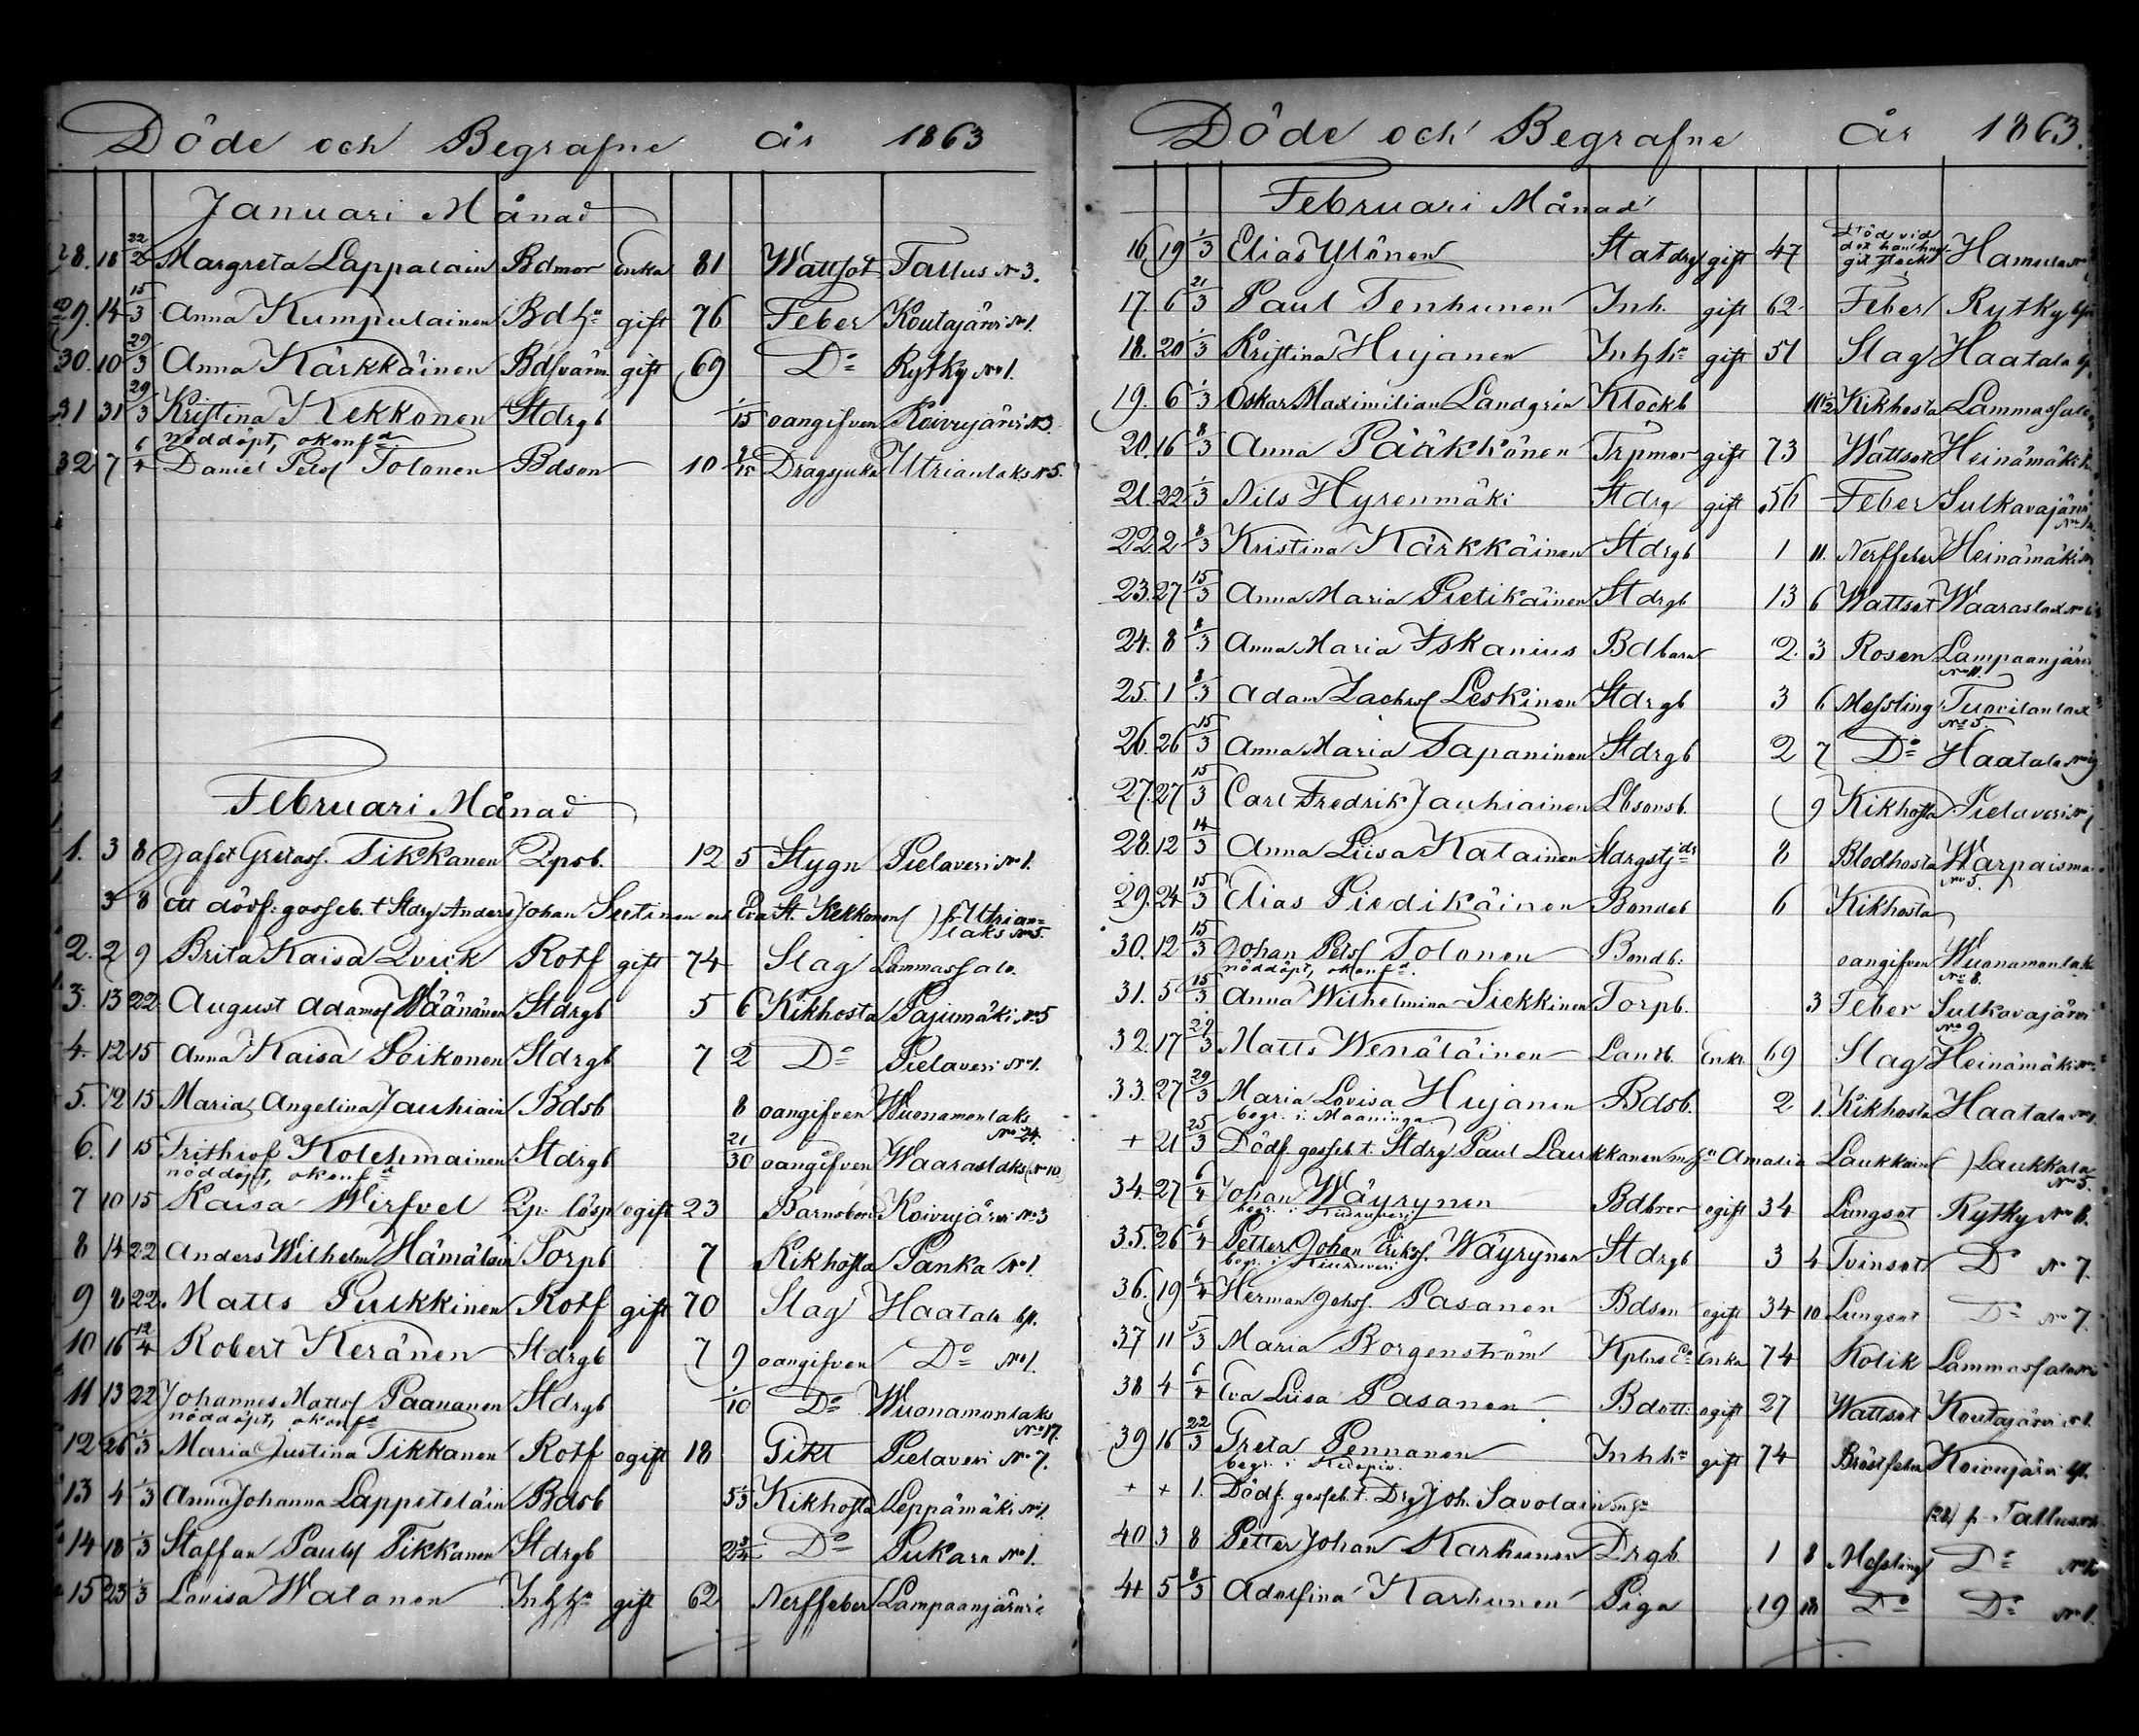 Döde och Begrafne år 1863
Januari Månad
28. 18 22/2 Margreta Lappalain Bdmor Enka 81 Wattsot Tallus No 3.
29. 14 15/3 Anna Kumpulainen Bdh:a gift 76 Feber Koutajärvi No 1.
30. 10 29/3 Anna Kärkkäinen Bdsvärm gift 69 Do Rytky No 1.
31 31 29/3 Kristina Kekkonen Stdrgb 1/15 oangifven Koivujärvi No 3.
nöddöpt, okonfd
32 7 6/4 Daniel Petss Tolonen Bdson 10 Dragsjuka Utrianlaks No 5.
Februari Månad
1. 3 8 Jafet Gretass. Tikkanen Qpsb. 12 5 Stygn Pielavesi No 1.
3 8 Ett dödf: gosseb. t Stdrg Anders Johan Sutinen och Eva St. Kekkonen) fr Utrian=
laks No 5.
2. 2 9 Brita Kaisa Qvick Rotf gift 74 Slag Lammassalo
3. 13 22 August Adamss Väänänen Stdrgb 5 6 Kikhosta Pajumäki No 5
4. 12 15 Anna Kaisa Poikonen Stdrgb 7 2 Do Pielavesi No 1.
5. 12 15 Maria Angelina Jauhiain Bdsb 8 oangifven Wuonamonlaks
No 24.
6. 1 15 Frithiof Kolehmainen Stdrgb 21/30 oangifven Waaraslaks (No 10)
nöddöpt, okonfd
7 10 15 Kaisa Wirfvel Qp. lösp ogift 23 Barnsbörd Koivujärvi No 3
8 14 22 Anders Wilhelm Hämäläin Torpb 7 Kikhosta Panka No 1.
9 8 22. Matts Pulkkinen Rotf gift 70 Slag Haatala
10 16 12/4 Robert Keränen Stdrgb 7 9 oangifven Do No 1.
11 13 22 Johannes Mattss Paananen Stdrgb 1/10 Do Wuonamonlaks
nöddöpt, okonfd No 17.
12 26 1/3 Maria Justina Tikkanen Rotf ogift 18 Gikt Pielavesi No 7.
13 4 1/3 Anna Johanna Lappeteläin Bdsb Kikhosta Leppämäki No 1.
14 18 1/3 Staffan Paulss Tikkanen Stdrgb Do Pukara No 1.
15 23 1/3 Lovisa Watanen Inhh:a gift 62 Nerffeber Lampaanjärvi
Döde och Begrafne år 1863.
Februari Månad
16 19 1/3 Elias Ylönen Statdrg gift 47 Död vid
Hamula No
17. 6 21/3 Paul Tenhunen Inh. gift 62 Feber Rytky
18. 20 1/3 Kristina Hujanen Inhh:a gift 51 Slag Haatala
19. 6 1/3 Oskar Maximilian Landgrin Klockb 11 1/2 Kikhosta Lammassalo
20. 16 8/3 Anna Pääkkönen Trpmor gift 73 Wattsot Heinämäki
21. 22 1/3 Nils Hyrenmäki Stdrg gift 56 Feber Sulkavajärvi
22 2 8/3 Kristina Kärkkäinen Stdrgb 1 11. Nerffeber Heinämäki
23. 27 15/3 Anna Maria Pietikäinen Stdrgb 13 6 Wattsot Waaraslax No
24. 8 8/3 Anna Maria Iskanius Bdbarn 2. 3 Rosen Lampaanjärvi
No 11.
25. 1 8/3 Adam Zachrss Leskinen Stdrgb 3 6 Messling Tuovilanlax
No 5.
26. 26 15/3 Anna Maria Tapaninen Stdrgb 2 7 Do Haatala No
27. 27 15/3 Carl Fredrik Jauhiainen Lbsonsb. 9 Kikhosta Pielavesi No 1
28. 12 14/3 Anna Liisa Katainen Stdrgstjdr 8 Blodhosta Warpaisma
No 5.
29. 24 15/3 Elias Piedikäinen Bondeb 6 Kikhosta
30. 12 15/3 Johan Petss Tolonen Bondb. oangifven Wuonamonlaks
nöddöpt, okonfd. No 8.
31. 5 15/3 Anna Wilhelmina Siekkinen Torpb. 3 Feber Sulkavajärvi
No 9
32. 17 29/3 Matts Wenäläinen Landb. Enkl 69 Slag Heinämäki No
33. 27 29/3 Maria Lovisa Hujanen Bdsb. 2 1. Kikhosta Haatala No 1.
begr. i Maaninga
+ 21 25/3 Dödf. gosseb t. Stdrg Paul Laukkanen m h:u Amalia Laukkain) Laukkala
No 5.
34. 27 6/4 Johan Wäyrynen Bdbror ogift 34 Lungsot Rytky No 8.
begr. i Kiuruvesi
35. 26 6/4 Petter Johan Erikss. Wäyrynen Stdrgb 3 4 Tvinsot Do No 7.
begr. i Kiuruvesi
36. 19 6/4 Herman Johss. Pasanen Bdson ogift 34 10 Lungsot Do No 7.
37 11 5/3 Maria Borgenström Enka 74 Kolik Lammassalo
38 4 6/4 Eva Liisa Pasanen Bdott: ogift 27 Wattsot Koutajärvi No 1.
39 16 22/3 Greta Pennanen Inhh:a gift 74 Bröstfeber Koivujärvi
begr. i Kuopio.
+ + 1. Dödf. gosseb. t. Drg Joh. Savolain m h:u
fr Tallus
40 3 8 Petter Johan Karhunen Drgb. 1 8 Messling Do No
41 5 8/3 Adolfina Karhunen Piga 19 Do Do No 1.